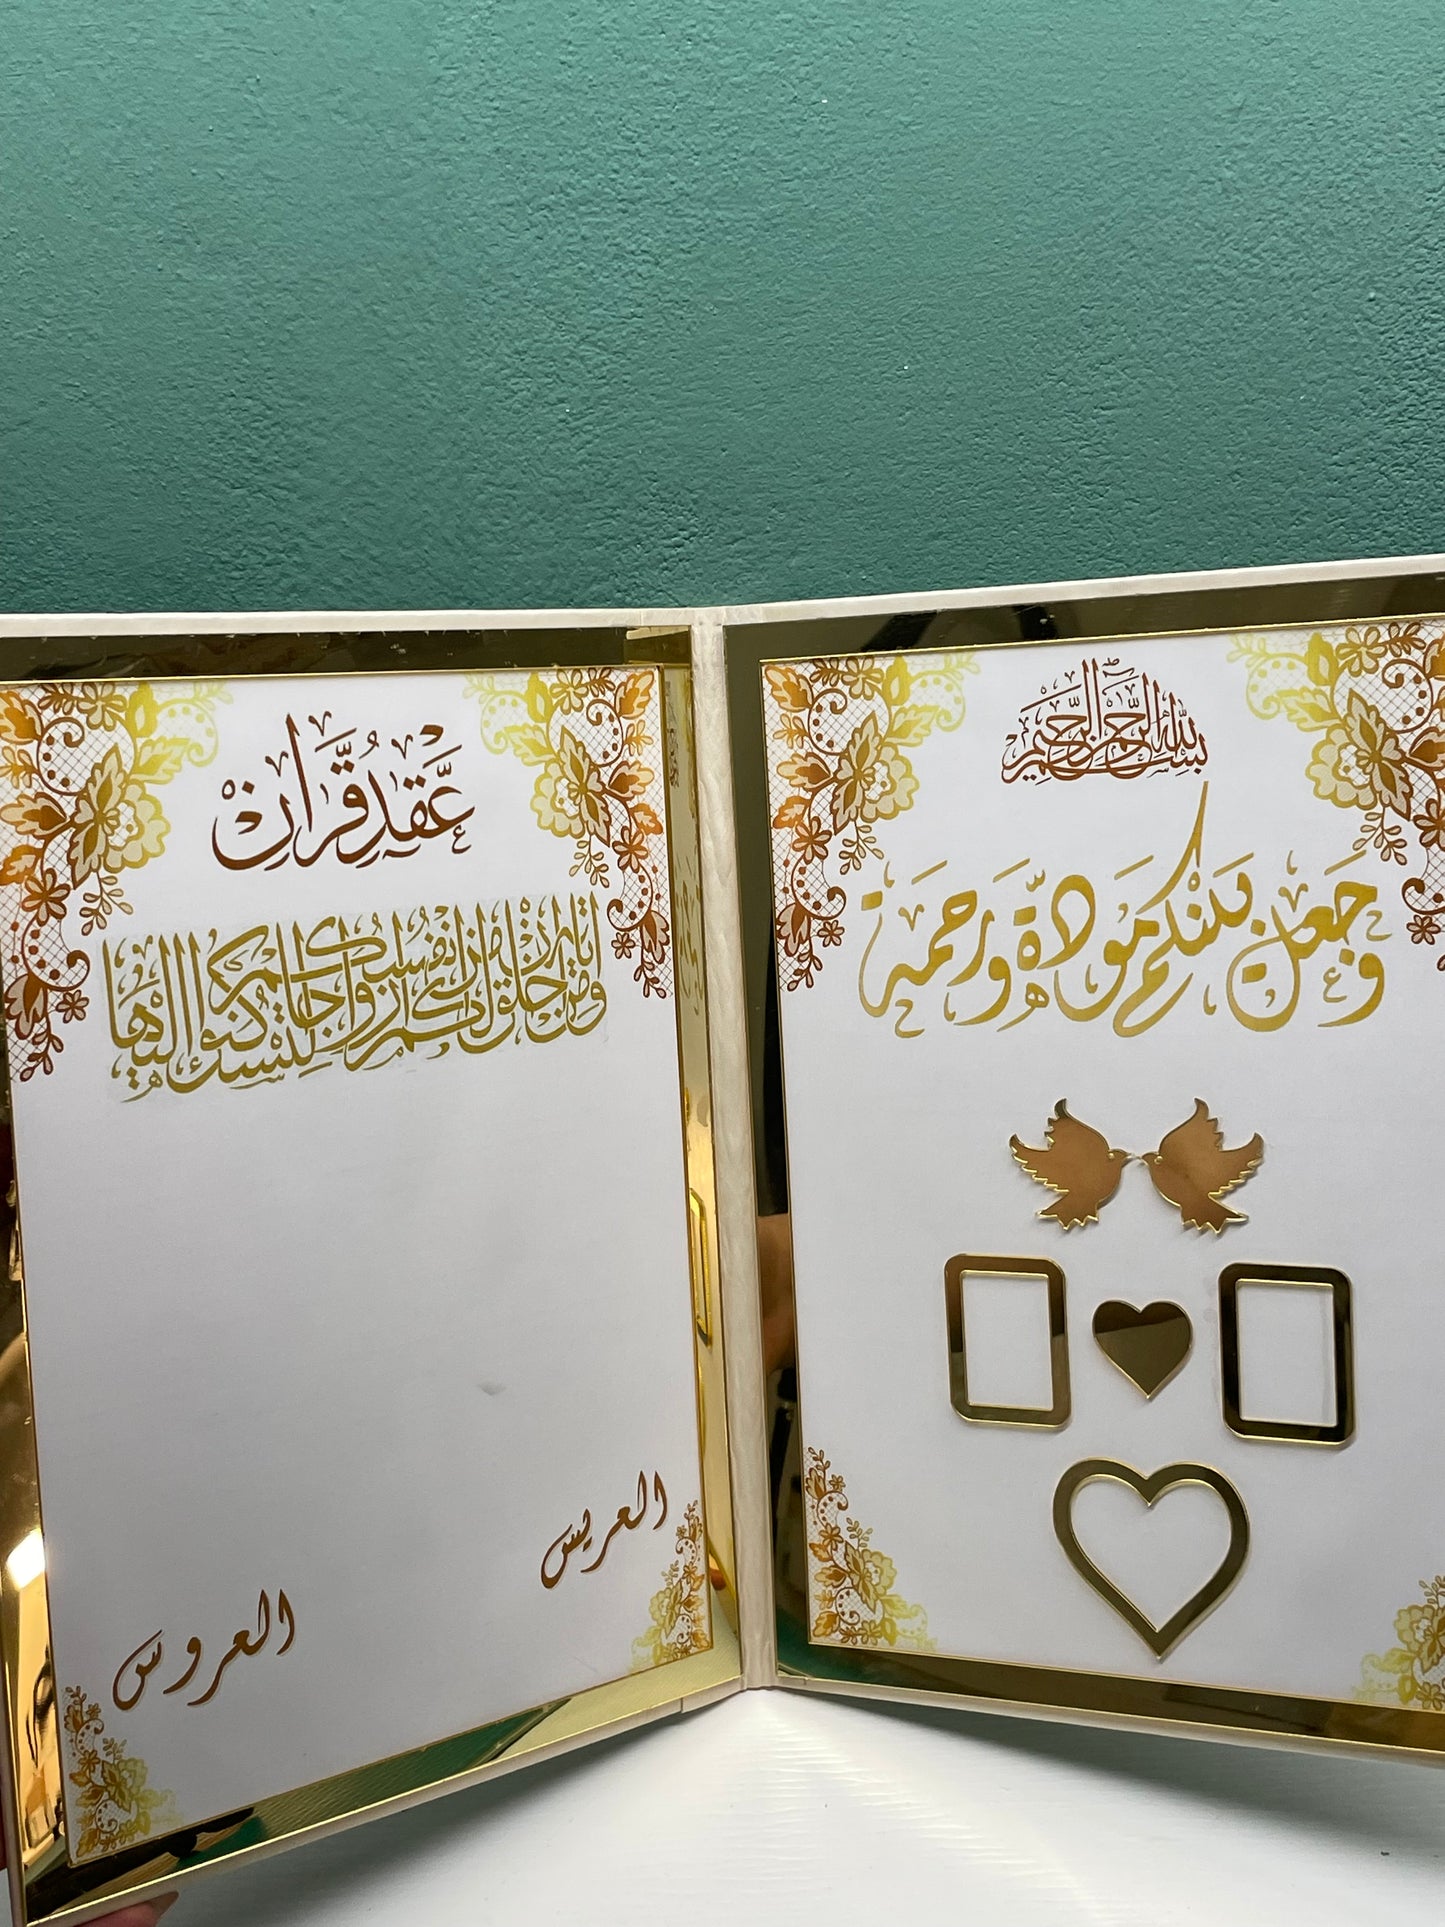 بسم الله الرحمن الرحيم
وجعل بينكم مودة ورحمة
عقد قران
ومن آياته أن خلق لكم من أنفسكم أزواجا لتسكنوا إليها
العريس
العروس